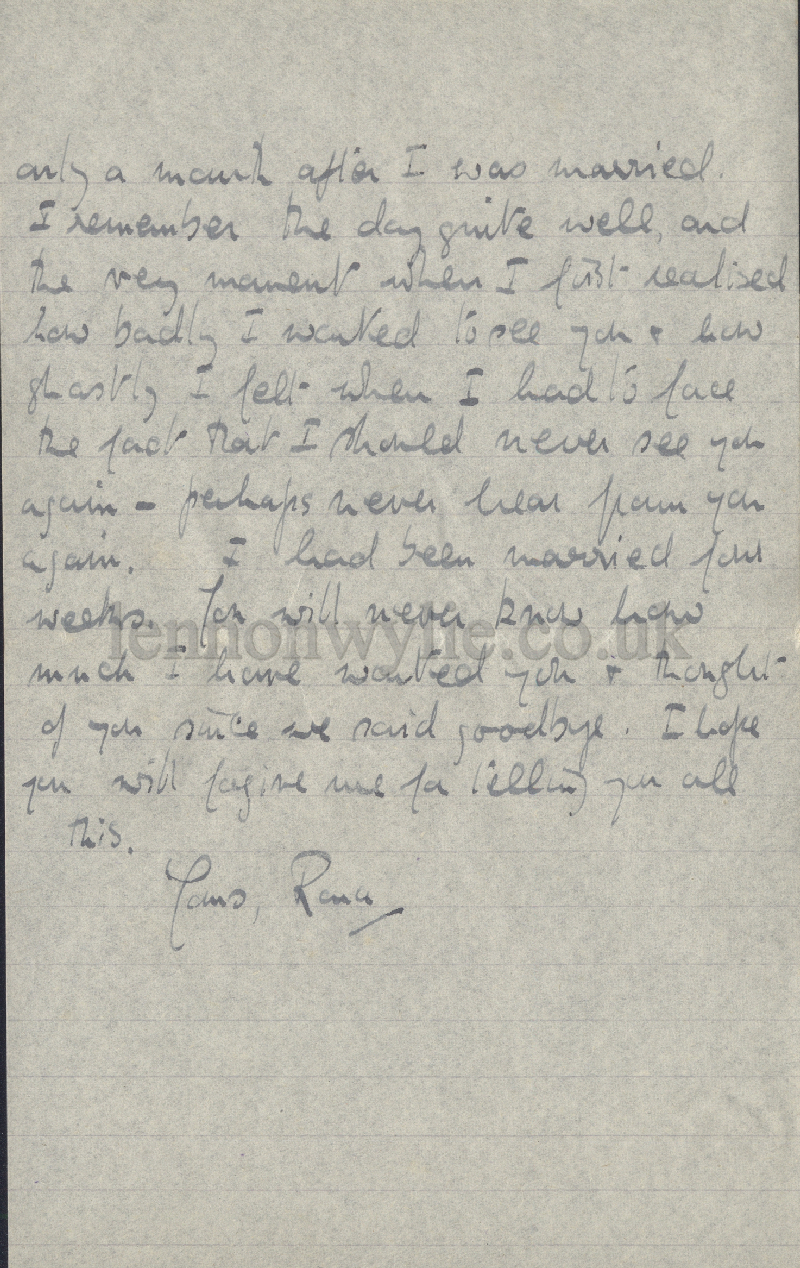 only a month after I was married.
I remember the day quite well, and
the very moment when I first realised
how badly I wanted to see you & how
ghastly I felt when I had to face
the fact that I should never see you
again - perhaps never hear from you
again. I had been married four
weeks. You will never know how
lennonwylie.co.uk
much I have wanted you & thought
of you since we said goodbye. I hope
you will forgive me for telling you all
this.
Yours, Rona